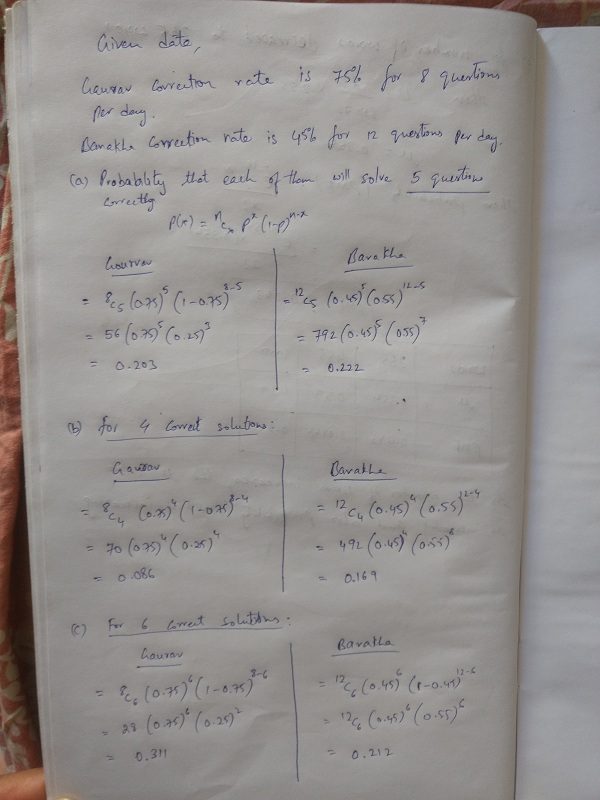 Given data,
Gaurav correction rate is 75% for 8 questions
per day.
Barakha correction rate is 45% for 12 questions per day.
(a) Probability that each of them will solve 5 questions
correctly
P(x) = ⁿCₓ pˣ (1-p)ⁿ⁻ˣ
Gourav
= ⁸C₅ (0.75)⁵ (1-0.75)⁸⁻⁵
= 56 (0.75)⁵ (0.25)³
= 0.203
Barakha
= ¹²C₅ (0.45)⁵ (0.55)¹²⁻⁵
= 792 (0.45)⁵ (055)⁷
= 0.222
(b) For 4 correct solutions:
Gaurav
= ⁸C₄ (0.75)⁴ (1-075)⁸⁻⁴
= 70 (0.75)⁴ (0.25)⁴
= 0.086
Barakha
= ¹²C₄ (0.45)⁴ (0.55)¹²⁻⁴
= 492 (0.45)⁴ (0.55)⁸
= 0.169
(c) For 6 correct solutions:
Gaurav
= ⁸C₆ (0.75)⁶ (1-0.75)⁸⁻⁶
= 28 (0.75)⁶ (0.25)²
= 0.311
Barakha
= ¹²C₆ (0.45)⁶ (1-0.45)¹²⁻⁶
= ¹²C₆ (0.45)⁶ (0.55)⁶
= 0.212